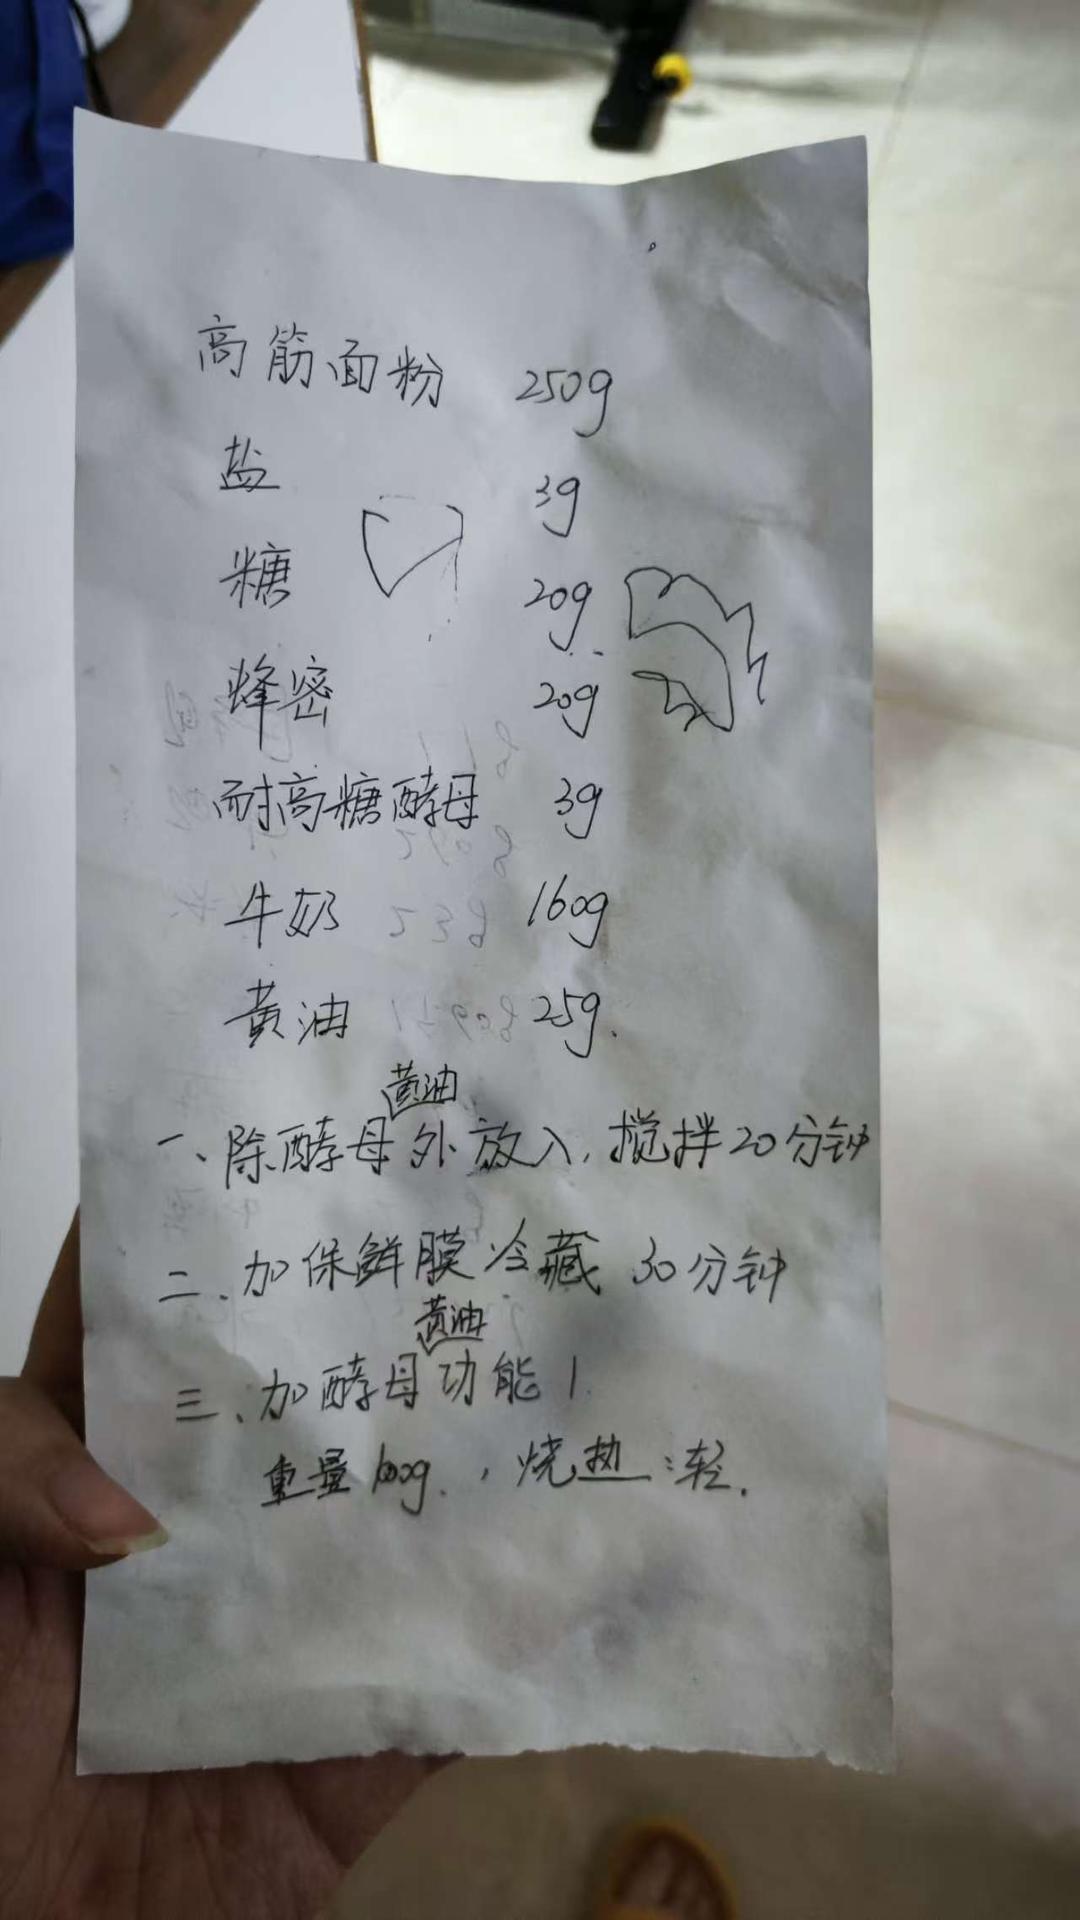 高筋面粉 250g
盐 3g
糖 20g
蜂密 20g
耐高糖酵母 3g
牛奶 160g
黄油 25g.
一、除酵母黄油外放入,搅拌20分钟
二、加保鲜膜冷藏 30分钟
三、加酵母黄油功能1
重量 g. ,烧 :轻.